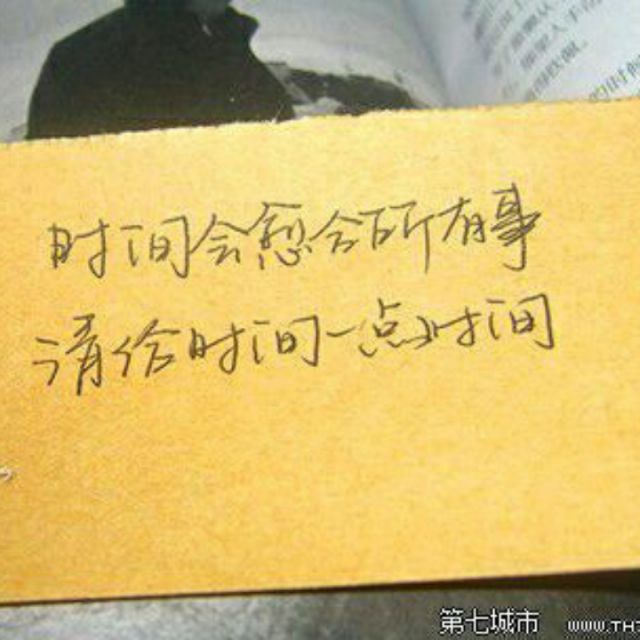 时间会愈合所有事
请给时间一点时间
第七城市 WWW.TH7